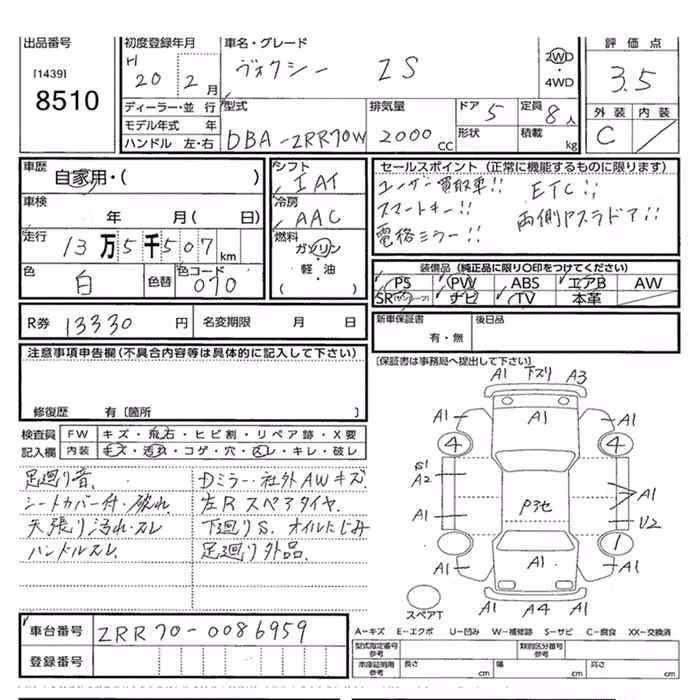 出品番号
[1439]
8510
初度登録年月
H 20 2 月
車名・グレード
ヴォクシー ZS
2WD
・
4WD
評価点
3.5
外装 内装
C
ディーラー・並 行
モデル年式 年
ハンドル 左・右
型式
DBA-ZRR70W
排気量
2000 cc
ドア 5
形状
定員 8人
積載 kg
車歴
自家用・( )
車検
年 月( 日)
走行
13万5千507km
色
白
色替
色コード
070
シフト
IAT
冷房
AAC
燃料
ガソリン
軽・油
( )
セールスポイント(正常に機能するものに限ります)
ユーザー買取車!! ETC!!
スマートキー!! 両側Pスラドア!!
電格ミラー!!
装備品(純正品に限り○印をつけてください)
PS PW ABS エアB AW
SR(サンルーフ) ナビ TV 本革
R券 13330 円
名変期限 月 日
新車保証書
有・無
後日品
[保証書は事務局へ提出して下さい]
注意事項申告欄(不具合内容等は具体的に記入して下さい)
修復歴 有〔箇所 〕
検査員 FW キズ・飛石・ヒビ割・リペア跡・X要
記入欄 内装 キズ・汚れ・コゲ・穴・スレ・キレ・破レ
足廻り音、 Dミラー・社外AWキズ
シートカバー付・破れ 左R スペアタイヤ、
天張り汚れ・スレ 下廻りS、オイルにじみ
ハンドルスレ、 足廻り外品、
A1 下スリ A3
A1 A1 A1
4 4
S1
A2
A1
P3セ
A1
U2
1
A1 A1 A1
A1 A4 A1
スペアT
車台番号 ZRR70-0086959
登録番号
A-キズ E-エクボ U-凹み W-補修跡 S-サビ C-腐食 XX-交換済
型式指定番号
参考
類別区分番号
参考
車庫証明用
参考
長さ cm 幅 cm 高さ cm